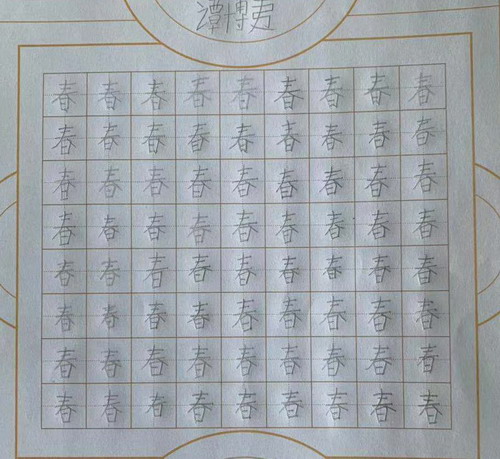 谭博
春春春春春春春春春
春春春春春春春春春
春春春春春春春春春
春春春春春春春春春
春春春春春春春春春
春春春春春春春春春
春春春春春春春春春
春春春春春春春春春